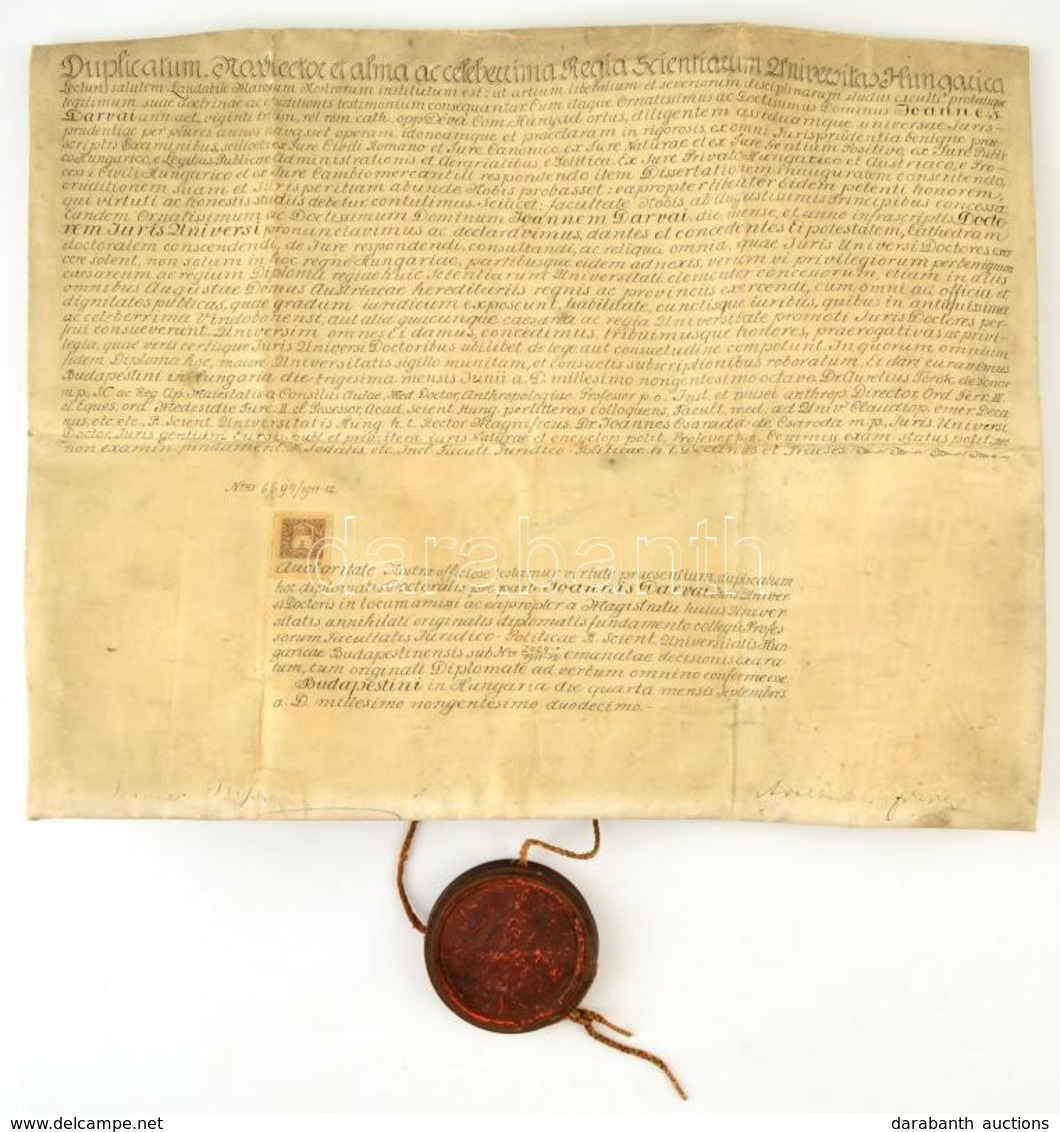 Duplicatum. Nos Rector et alma ac celeberrima Regia Scientiarum Universitas Hungarica
Lectur. salutem. Laudabile Maiorum Nostrorum institutum est: ut artium liberalium et severiorum disciplinarum studiis exculti, probatique
legitimum suae doctrinae ac eruditionis testimonium consequantur. Cum itaque Ornatissimus ac Doctissimus Dominus Joannes
Darvai ann. act. viginti trium, rel. rom. cath., opp. Déva Com. Hunyad ortus, diligentem assiduamque universae Juris-
prudentiae per plures annos navasset operam, idoneamque et praeclaram in rigorosis ex omni Jurisprudentia benigne prae-
scriptis Examinibus, scilicet: ex Jure Civili Romano et Jure Canonico, ex Jure Naturae et ex Jure Gentium Positivo, ex Jure Publi-
co Hungarico, e Legibus Publicae Administrationis et Aerarialibus e Politica. Ex Jure Privato Hungarico et Austriaco, e Pro-
cessu Civili Hungarico et ex Jure Cambiomercantili respondendo item Dissertationem inauguralem conscribendo,
eruditionem suam et Juris peritiam abunde Nobis probasset: ea propter libenter eidem petenti honorem,
qui virtuti ac honestis studiis debetur, contulimus. Scilicet: facultate Nobis ab Augustissimis Principibus concessa
Eundem Ornatissimum ac Doctissimum Dominum Joannem Darvai, die, mense, et anno infrascriptis, Docto-
rem Juris Universi pronunciavimus ac declaravimus, dantes et concedentes Ei potestatem, Cathedram
doctoralem conscendendi, de Jure respondendi, consultandi, ac reliqua omnia, quae Juris Universi Doctores exer
cere solent, non solum in hoc regno Hungariae, partibusque eidem adnexis, verum vi privilegiorum per benignum
caesareum ac regium Diploma regiae huic Scientiarum Universitati clementer concessorum, etiam in aliis
omnibus Augustae Domus Austriacae hereditariis regnis ac provinciis exercendi, cum omni ad officia et
dignitates publicas, quae gradum iuridicum exposcunt, habilitate, cunctisque iuribus, quibus in antiquissima
ac celeberrima Vindobonensi, aut alia quacunque caesarea ac regia Universitate promoti Juris Doctores per-
frui consueverunt. Universim omnes Ei damus, concedimus, tribuimusque honores, praerogativas ac privi-
legia, quae veris certisque Juris Universi Doctoribus ubilibet de lege aut consuetudine competunt. In quorum omnium
fidem Diploma hoc, maiore Universitatis sigillo munitum, et consuetis subscriptionibus roboratum, Ei dari curavimus
Budapestini in Hungaria die trigesima mensis Junii a. D. millesimo nongentesimo octavo. Dr Aurelius Török de Ponor
m.p., SC. ac Reg. Ap. Maiestatis a Consiliis Aulae, Med. Doctor, Anthropologiae Professor p. o. Inst. et musei anthrop. Director, Ord. Ferr. III.
cl. Eques, ord. Medsidie Turc. II. cl. Possessor, Acad. Scient. Hung. per litteras colloquens, Facult. med. ad Univ. Claudiop. emer. Deca-
nus, etc. etc., R. Scient. Universitatis Hung. h. t. Rector Magnificus. Dr Joannes Csarada de Csaroda m.p., Juris Universi
Doctor, Juris gentium Europ. publ. et priv. item juris Naturae et encyclop. polit. Professor p. o. Commiss. exam. status polit. pro
non examin. fundament. Sodalis, etc. Incl. Facult. Juridico-Politicae h. t. Decanus et Praeses.
/1911-12
Auctoritate Nostra officiose testamur virtute praesentium duplicatum
hoc diplomatis Doctoralis pro parte Joannis Darvai Juris Univer-
si Doctoris in locum amissi ac ea propter a Magistratu huius Univer
sitatis annihilati originalis diplomatis fundamento collegii Profes
sorum Facultatis Juridico-Politicae R. Scient. Universitatis Hun-
garicae Budapestinensis sub Nro emanatae decisionis exara-
tum, cum originali Diplomate ad verbum omnino conforme esse.
Budapestini in Hungaria die quarta mensis Septembris
a. D. millesimo nongentesimo duodecimo.-
darabanth
darabanth auctions
www.delcampe.net